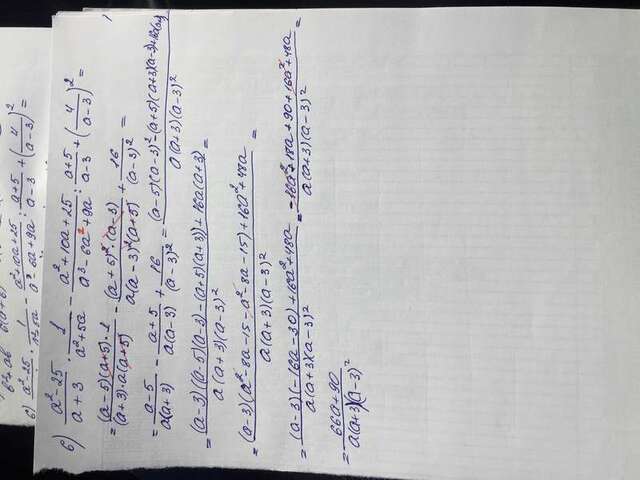 б) (a²-25)/(a+3) · 1/(a²+5a) - (a²+10a+25)/(a³-6a²+9a) : (a+5)/(a-3) + (4/(a-3))² =
= ((a-5)(a+5)·1)/((a+3)·a(a+5)) - ((a+5)²·(a-3))/(a(a-3)²(a+5)) + 16/(a-3)² =
= (a-5)/(a(a+3)) - (a+5)/(a(a-3)) + 16/(a-3)² = ((a-5)(a-3)²-(a+5)(a+3)(a-3)+16a(a+3))/(a(a+3)(a-3)²)
= ((a-3)((a-5)(a-3)-(a+5)(a+3))+16a(a+3))/(a(a+3)(a-3)²) =
= ((a-3)(a²-8a-15-a²-8a-15)+16a²+48a)/(a(a+3)(a-3)²) =
= ((a-3)(-16a-30)+16a²+48a)/(a(a+3)(a-3)²) = (-16a²+18a+90+16a²+48a)/(a(a+3)(a-3)²) =
= (66a+90)/(a(a+3)(a-3)²)